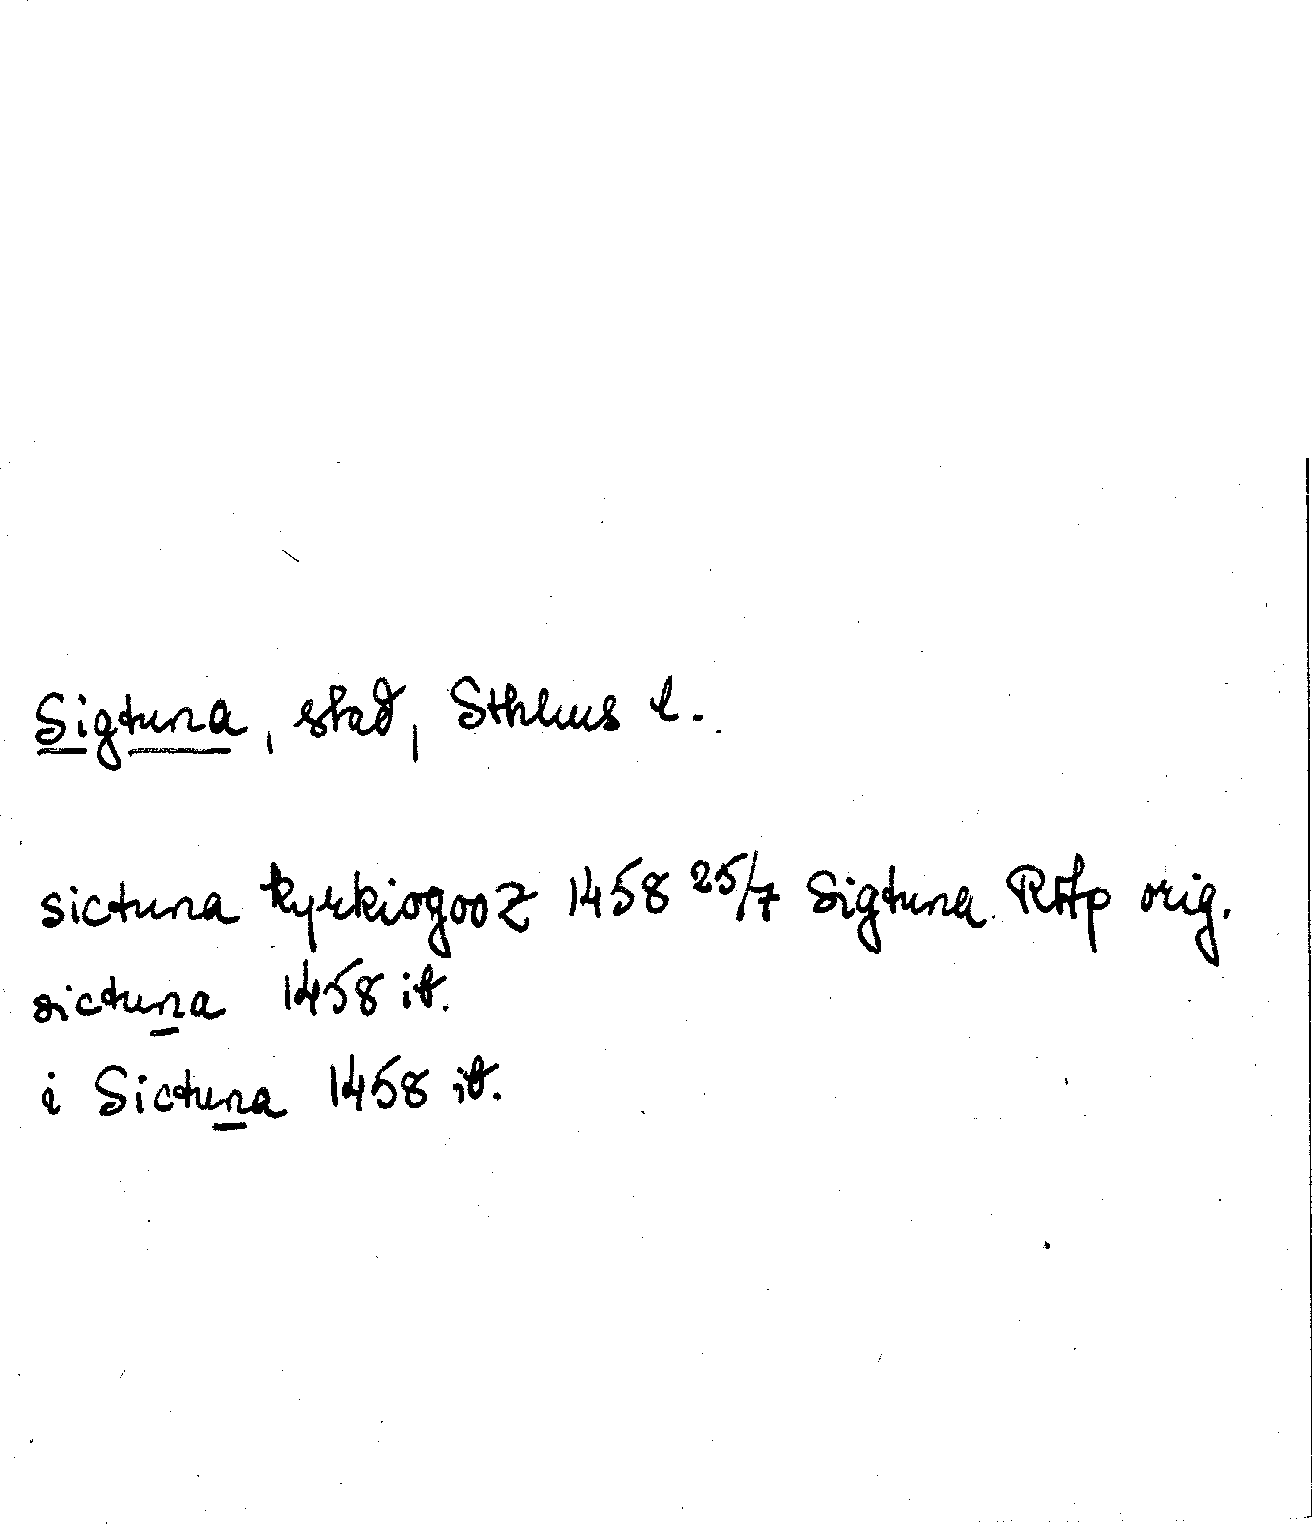 Sigtuna, stad, Sthlms l.
sictuna kyrkiogooz 1458 25/7 Sigtuna RAp orig.
sictuna 1458 ib.
i Sictuna 1458 ib.